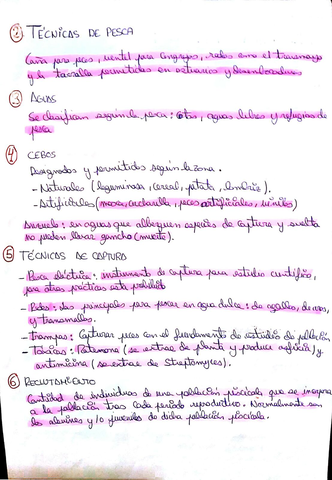 ② TÉCNICAS DE PESCA
Caña para peces, retel para cangrejos, redes como el trasmayo
y la tarralla permitidas en estuarios y desembocaduras
③ AGUAS
Se clasifican según la pesca: cotos, aguas libres y refugios de
pesca
④ CEBOS
Designados y permitidos según la zona.
- Naturales (leguminosa, cereal, patata, lombriz).
- Artificiales (mosca, cucharilla, peces artificiales, vinilos)
Anzuelo: en aguas que alberguen especies de captura y suelta
no pueden llevar gancho (muerte).
⑤ TÉCNICAS DE CAPTURA
- Pesca eléctrica: instrumento de captura para estudio científico,
para otras prácticas está prohibido
- Redes: las principales para pescar en agua dulce: de agalles,
y transmalles.
- Trampas: Capturar peces con el fundamento de estudio de población
- Tóxicos: Rotenona (se extrae de planta y produce asfixia) y
antimicina (se extrae de Streptomyces).
⑥ RECLUTAMIENTO
Cantidad de individuos de una población piscícola que se incorpora
a la población tras cada periodo reproductivo. Normalmente son
los alevines y/o juveniles de dicha población piscícola.